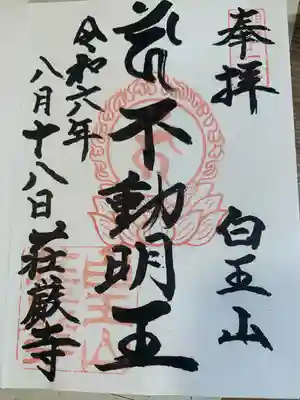 奉拝
白王山
不動明王
令和六年
八月十八日
荘厳寺